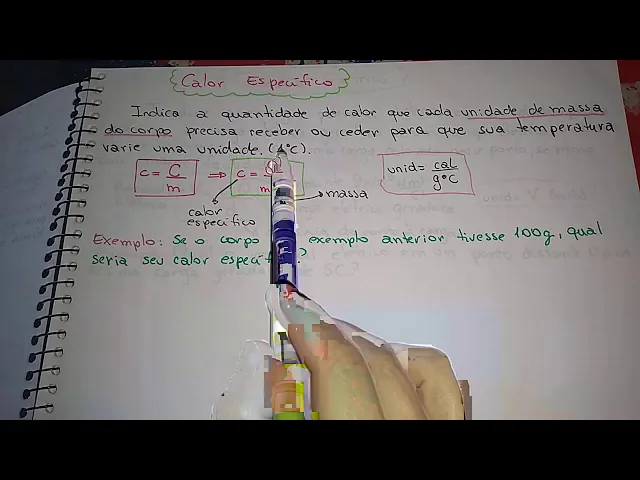 Calor Específico
Indica a quantidade de calor que cada unidade de massa
do corpo precisa receber ou ceder para que sua temperatura
varie uma unidade. (1°C).
c = C/m ⇒ c = m unid = cal/g°C
calor específico massa
Exemplo: Se o corpo exemplo anterior tivesse 100g, qual
seria seu calor específ ?